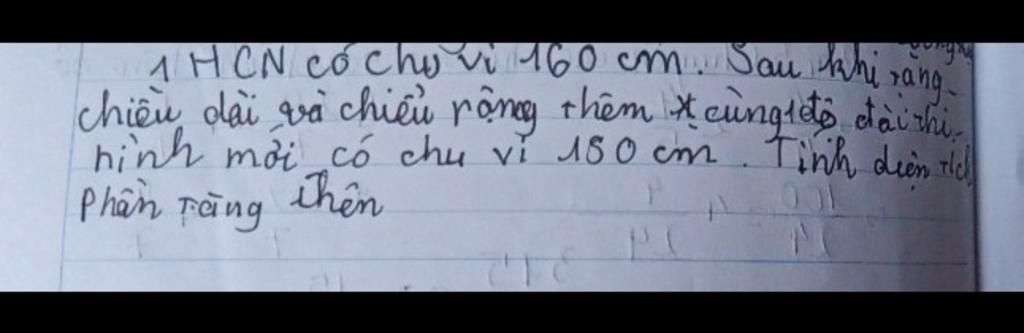 1 HCN có chu vi 160 cm. Sau khi tăng
chiều dài và chiều rộng thêm cùng 1 độ dài thì
hình mới có chu vi 180 cm. Tính diện tích
phần tăng thên